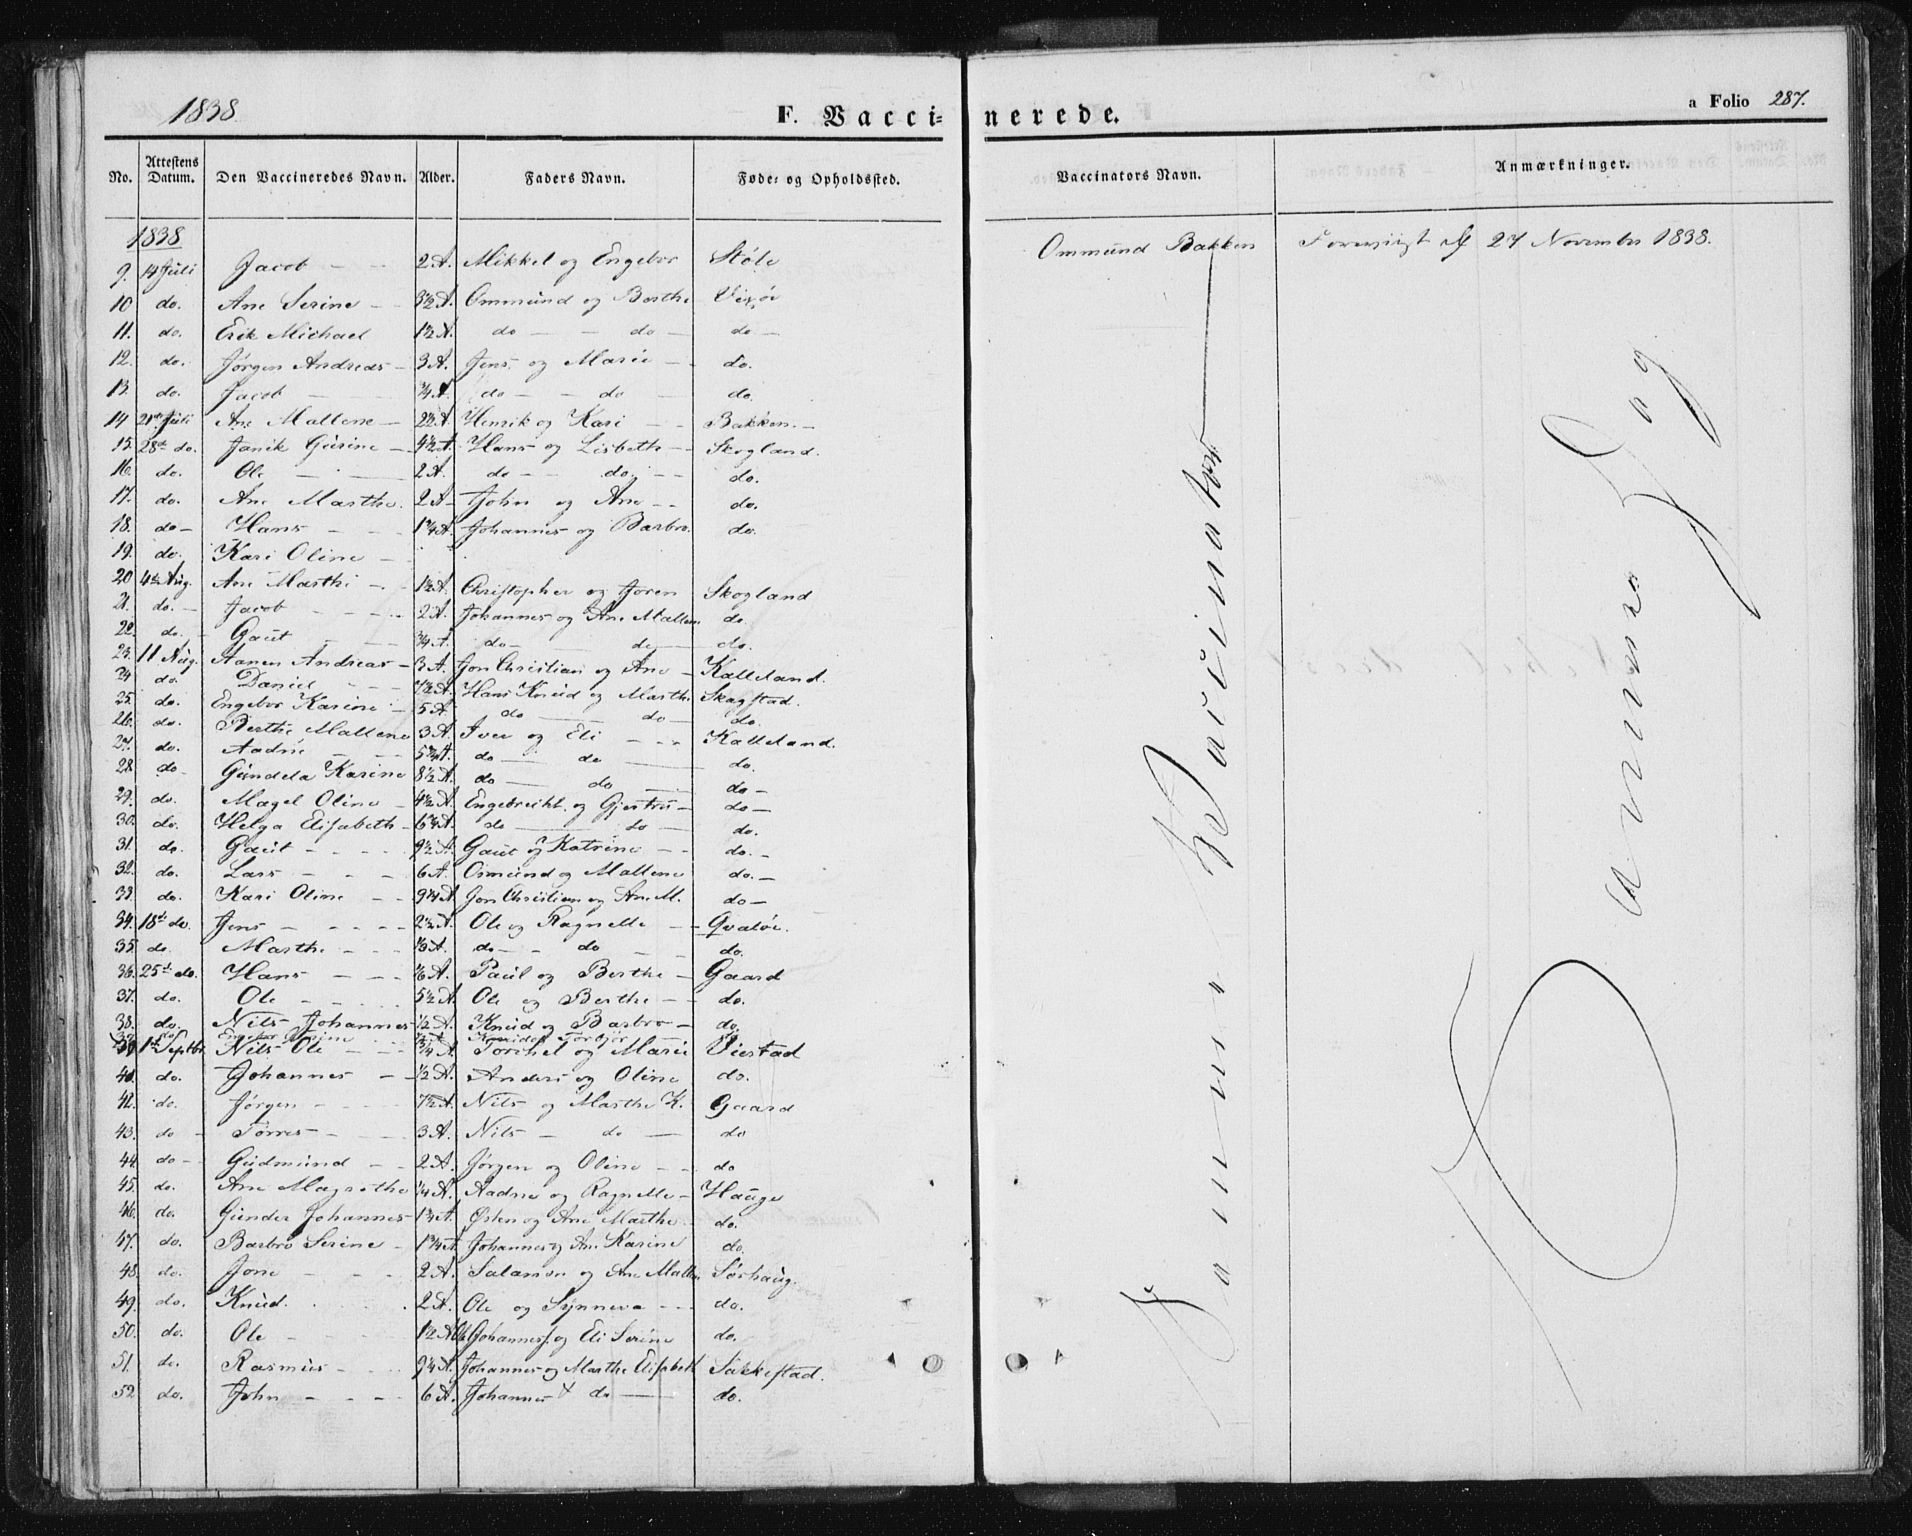 1838.
F. Vaccinerede.
a Folio 287.
No. Attestens Datum. Den Vaccineredes Navn. Alder. Faders Navn. Føde- og Opholdssted. Vaccinators Navn. Anmærkninger.
1838
9. 14 Juli Jacob 2 A. Mikkel og Engebor Støle Ommund Bakken Foreviist 27 November 1838.
10 do. Ane Serine 3½ A. Ommund og Berthe
11. do. Erik Michael 1½ A. do do do
12. do. Jørgen Andreas 3 A. Jens og Marie do.
13. do. Jacob ¾ A do do do.
14 21de Juli Ane Mallene 2½ A. Henrik og Kari Bakken
15. 28de do. Janik Gurine 4½ A Hans og Lisbeth Skogland.
16. do. Ole 2 A. do do do.
17. do. Ane Marthe. 2 A John og Ane do.
18. do Hans 1¾ A. Johannes og Barbro. do.
19. do. Kari Oline
20 4de Aug. Ane Marthe 1½ A. Christopher og Joren Skogland
21. do. Jacob 2 A. Johannes og Ane Mallene do.
22. do. Gaut ¾ A. do do do.
23. 11 Aug. Aanen Andreas 3 A. Jon Christian og Ane Kalleland.
24 do. Daniel 7½ A. Hans Knud og Marthe Skagstad.
25. do. Engebor Karine 5 A. do do do.
26. do. Berthe Mallene 3 A. Iver og Eli Kalleland.
27. do. Aadne 5¾ A. do do do.
28. do Gundela Karine 8½ A. do do do
29. do. Magel Oline 4½ A. Engebrecht. og Gjertru do
30. do. Helga Elisabeth 6¾ A. do do do.
31. do. Gaut 9½ A. Gaut og Katrine do.
32. do. Lars 6 A. Osmund og Mallene do.
33. do. Kari Oline 9¼ A Jon Christian og Ane M. do
34. 18de do. Jens 2½ A. Ole og Ragnelle Qvaløe.
35. do. Marthe A. do do do.
36. 25de do. Hans A. Paul og Berthe Gaard
37. do. Ole 5½ A. Ole og Berthe do.
38. do. Nils Johannes ½ A. Knud og Barbro do.
39. do Engebor Serine Knud og Torbjør
1ste Septbr. Nils Ole ¾ A Torkel og Marie Viestad
do. Johannes ½ A. Anders og Oline do.
42. do. Jørgen 7½ A. Nils og Marthe K. Gaard
43. do Torres 3 A. Nils do do
44 do Gudmund 2 A. Jørgen og Oline do
45. do. Ane Magrethe ¼ A. Aadne og Ragnelle Hauge
46. do. Gunder Johannes 1¾ A. Østen og Ane Marthe do.
47. do. Barbro Serine 1¾ A Johannes og Ane Karine do.
48. do. Jone 2 A. Salamon og Ane Mallene Sørhaug.
49. do. Knud. 2 A. Ole og Synneva do.
50. do. Ole 1½ A Johannes og Eli Serine do.
51. do. Rasmus 9¼ A. Johannes og Marthe Elisabeth Sakkestad.
52 do. John 6 A. Johannes do do.
Samme Vaccinator
Samme Dag